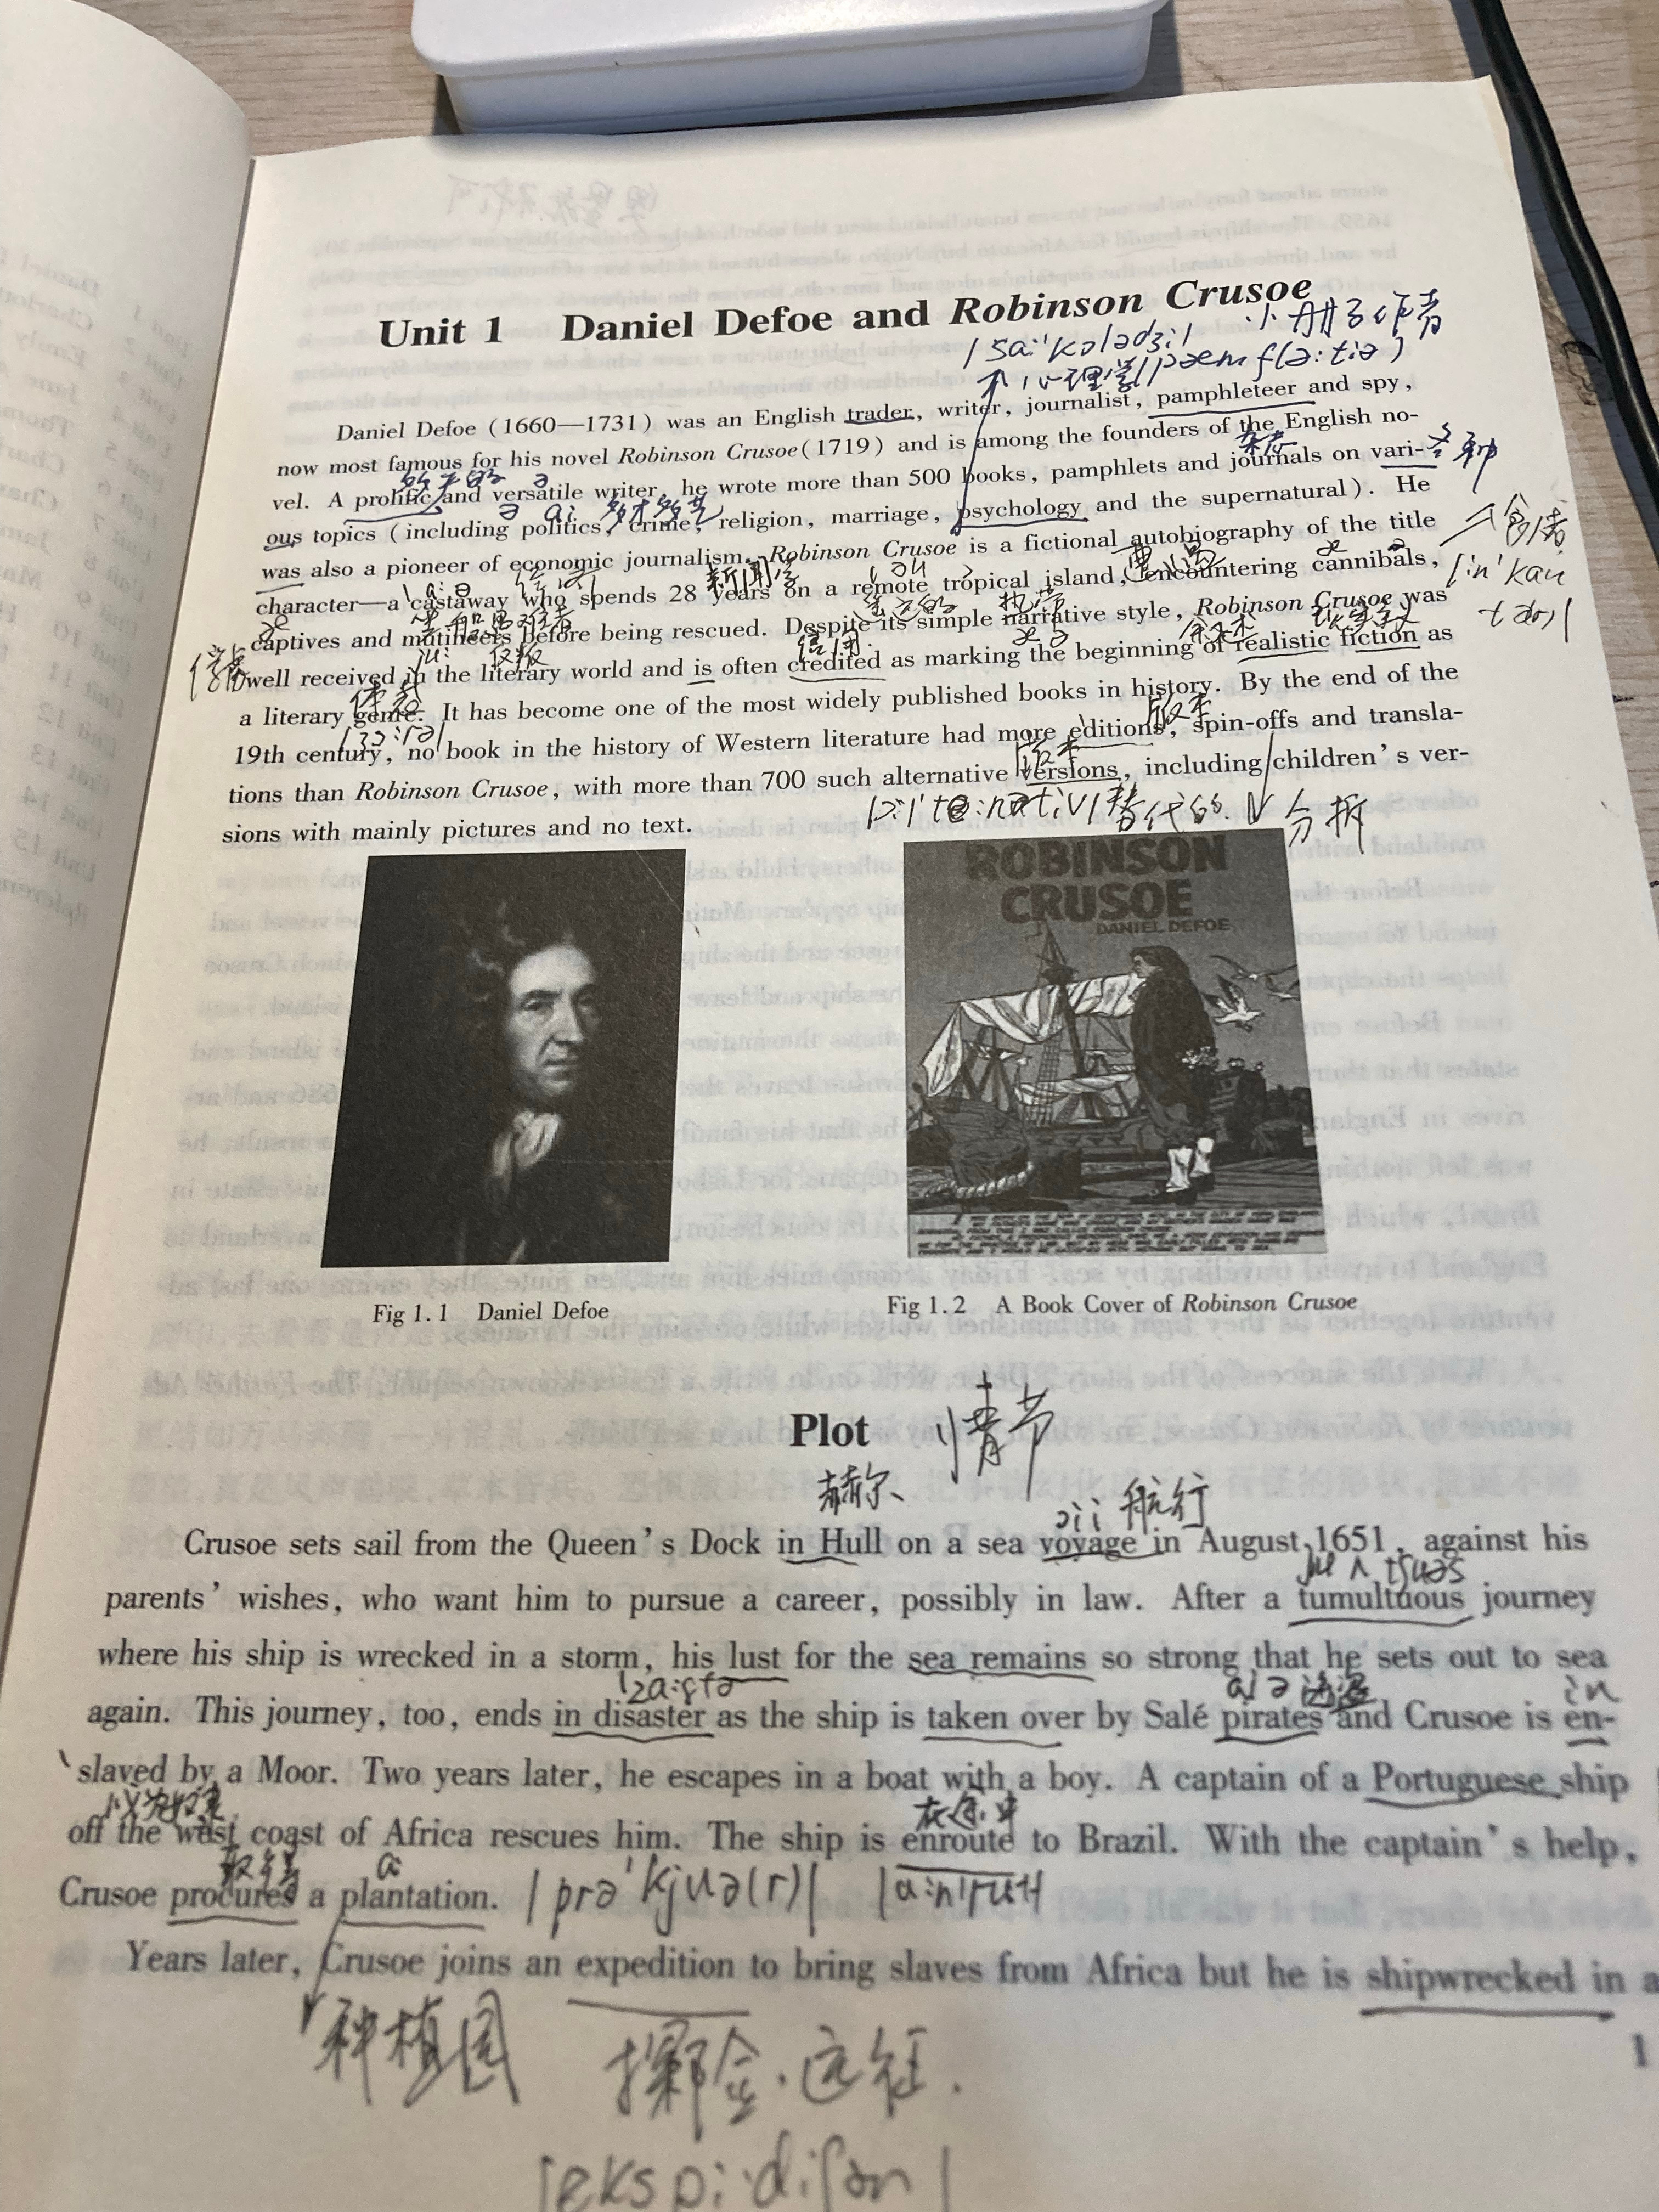 Unit 1 Daniel Defoe and Robinson Crusoe
小册子作者
心理学
Daniel Defoe (1660—1731) was an English trader, writer, journalist, pamphleteer and spy,
now most famous for his novel Robinson Crusoe(1719) and is among the founders of the English no-
杂志
vel. A prolific and versatile writer, he wrote more than 500 books, pamphlets and journals on vari-
多才多艺
ous topics (including politics, crime, religion, marriage, psychology and the supernatural). He
was also a pioneer of economic journalism. Robinson Crusoe is a fictional autobiography of the title
新闻学
character—a castaway who spends 28 years on a remote tropical island, encountering cannibals,
遥远的 热带
captives and mutineers before being rescued. Despite its simple narrative style, Robinson Crusoe was
信用
well received in the literary world and is often credited as marking the beginning of realistic fiction as
体裁
a literary genre. It has become one of the most widely published books in history. By the end of the
版本
19th century, no book in the history of Western literature had more editions, spin-offs and transla-
版本
tions than Robinson Crusoe, with more than 700 such alternative versions, including children's ver-
替代的 分拆
sions with mainly pictures and no text.
ROBINSON
CRUSOE
DANIEL DEFOE
Fig 1.1 Daniel Defoe
Fig 1.2 A Book Cover of Robinson Crusoe
Plot 情节
赫尔
航行
Crusoe sets sail from the Queen's Dock in Hull on a sea voyage in August 1651, against his
parents' wishes, who want him to pursue a career, possibly in law. After a tumultuous journey
where his ship is wrecked in a storm, his lust for the sea remains so strong that he sets out to sea
海盗
again. This journey, too, ends in disaster as the ship is taken over by Salé pirates and Crusoe is en-
slaved by a Moor. Two years later, he escapes in a boat with a boy. A captain of a Portuguese ship
off the west coast of Africa rescues him. The ship is enroute to Brazil. With the captain's help,
Crusoe procures a plantation. |prə'kjuə(r)|
Years later, Crusoe joins an expedition to bring slaves from Africa but he is shipwrecked in a
种植园 探险.远征.
1